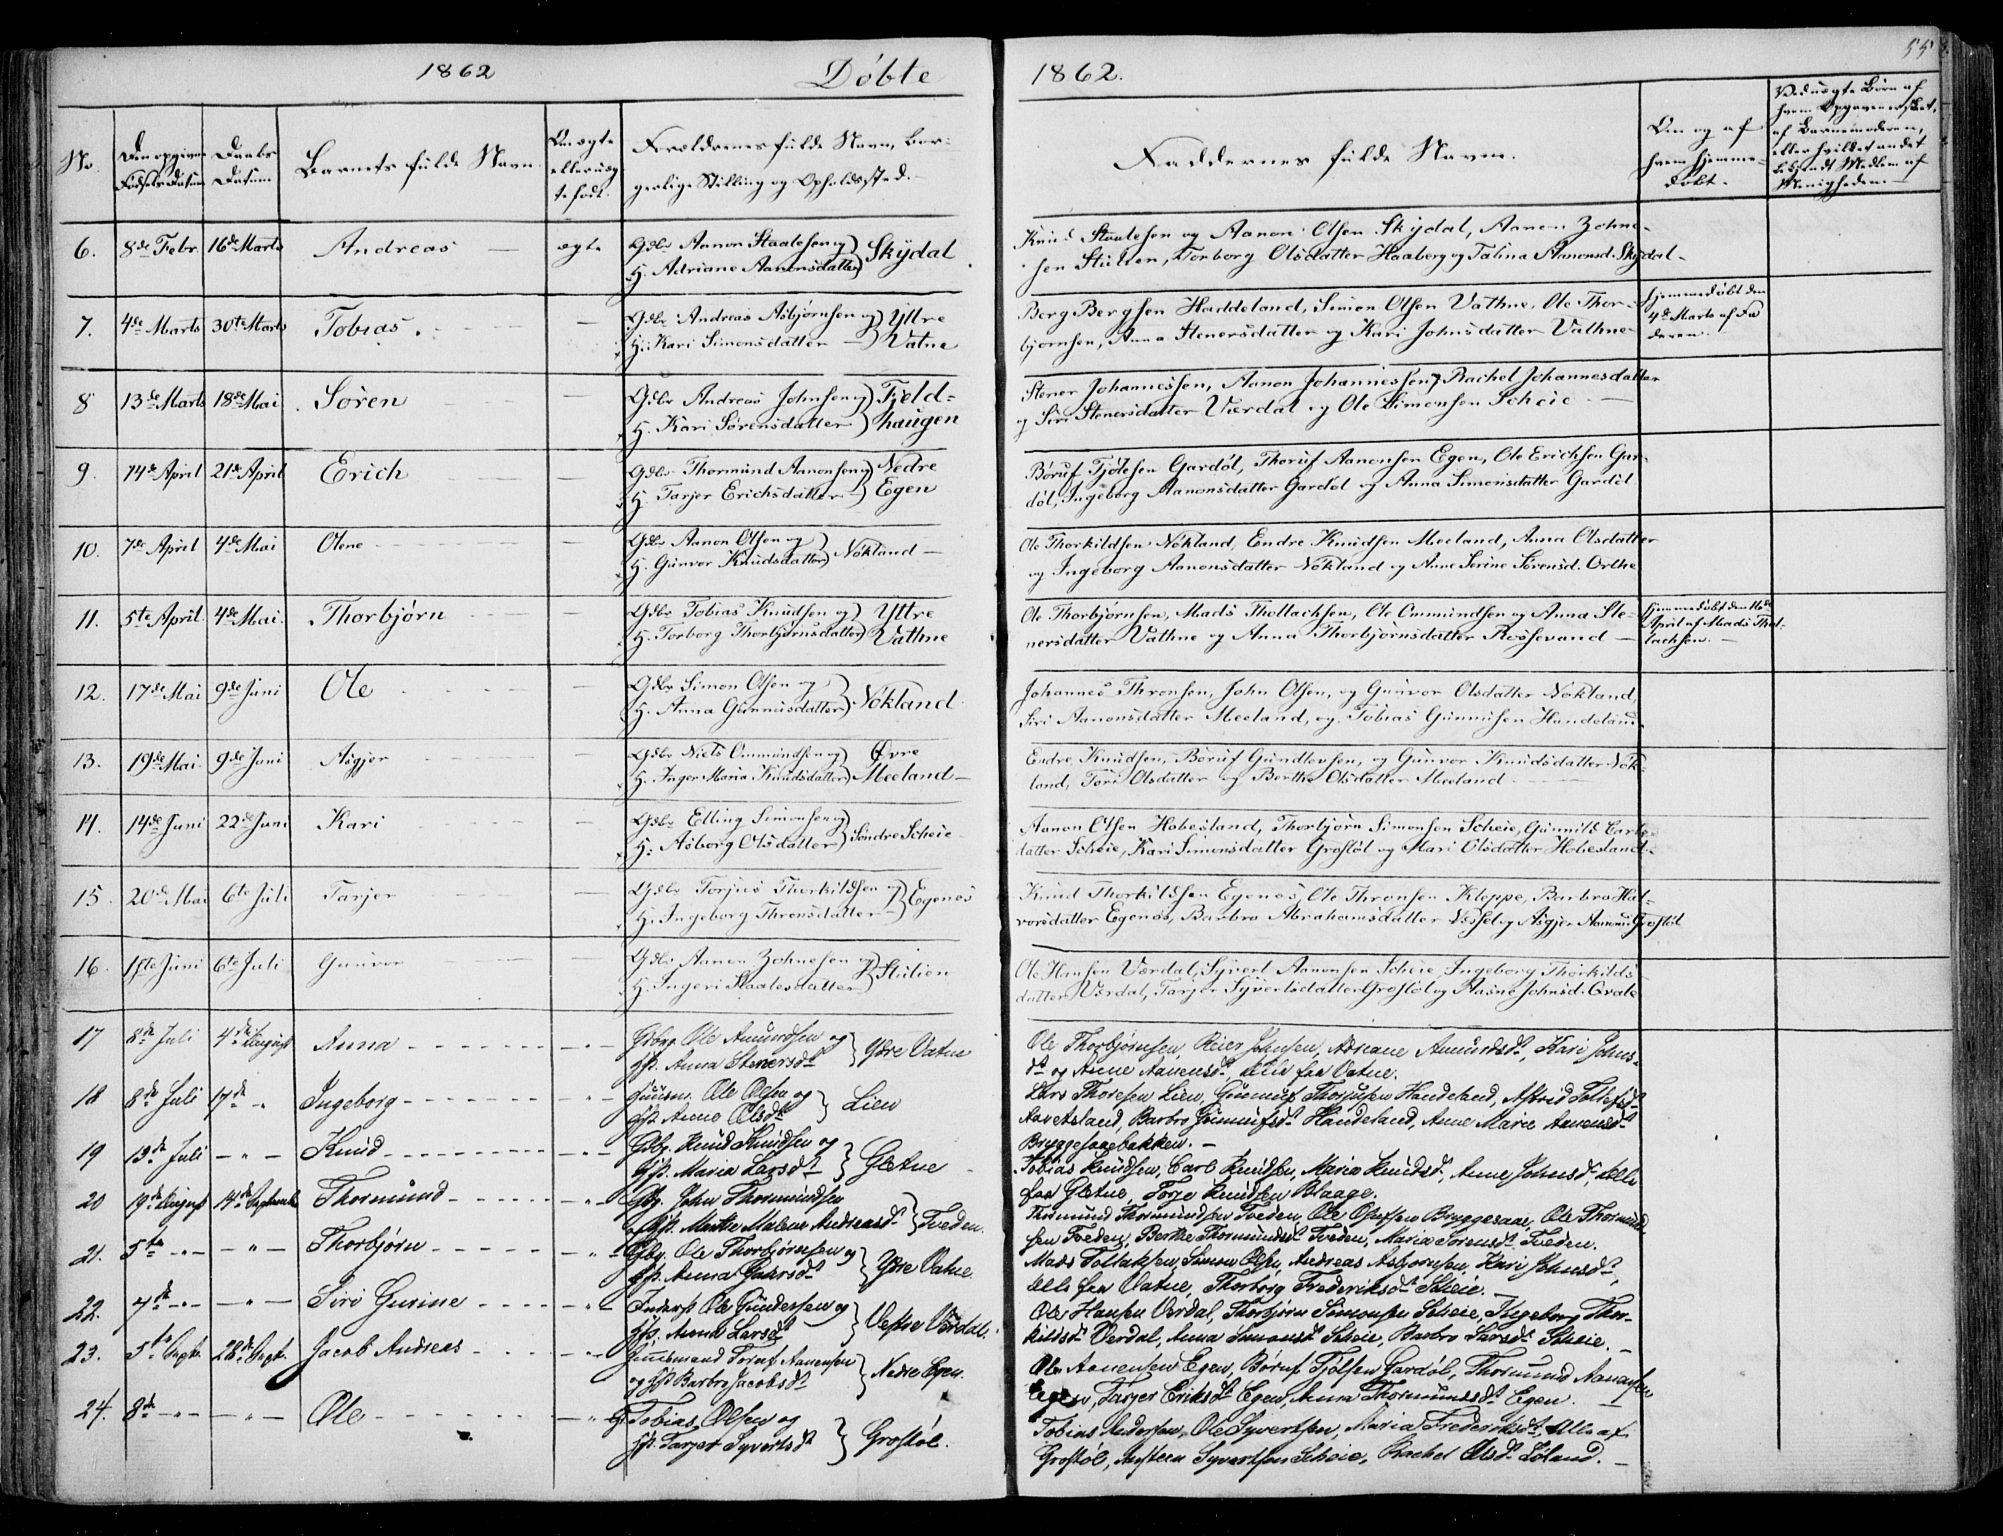 1862 Døbte
1862.
55
No. Den opgivne Fødsels-Datum Daabs Datum Barnets fulde Navn Om ægte eller uægte født. Forældrenes fulde Navn, borgerlige Stilling og Opholdssted.
Faddernes fulde Navn. Om og af hvem hjemmedøbt. Ved uægte Børn af
af Barnemoderen,
Menigheden.
6. 8de Febr. 16de Marts Andreas ægte Gdbr Aanon Staalesen og Skydal
H. Adriane Aanonsdatter
Knud Staalesen og Aanon Olsen Skydal, Aanon Zohne-
sen Stulien, Torborg Olsdatter Haaberg og Talina Aanonsd. Skydal
7. 4de Marts 30te Marts Tobias. Gdbr Andreas Asbjørnsen og Yttre
H. Kari Simonsdatter Vatne
Berg Bergsen Haddeland, Simon Olsen Vathne, Ole Thor-
bjørnsen, Anna Stenersdatter og Kari Johnsdatter Vathne
hjemmedøbt den
4de Marts af Fa
deren.
8 13de Marts 18de Mai Søren Gdbr Andreas Johnsen og Fjeld-
H. Kari Sørensdatter haugen
Stener Johannessen, Aanon Johannessen, Rachel Johannesdatter
og Siri Stenersdatter Værdal og Ole Simonsen Scheie
9. 14de April 21de April Erich Gdbr Thormund Aanonsen og Nedre
H. Tarjer Erichsdatter Egen
Børuf Tjølsen Gardøl, Thoruf Aanonsen Egen, Ole Erichsen Gar-
døl, Ingeborg Aanonsdatter Gardøl og Anna Simonsdatter Gardøl
10. 7de April 4de Mai Olene Gdbr Aanon Olsen og Nøkland
H. Gunvor Knudsdatter
Ole Thorkildsen Nøkland, Endre Knudsen Meeland, Anna Olsdatter
og Ingeborg Aanonsdatter Nøkland og Anne Serine Sørensd. Orthe
11. 5te April 4de Mai. Thorbjørn Gdbr Tobias Knudsen og Yttre
H. Torborg Thorbjørnsdatter Vathne
Ole Thorbjørnsen, Mads Thollachsen, Ole Ommundsen og Anna Ste-
nersdatter Vathne og Anna Thorbjørnsdatter Rossevand
hjemmedøbt den 16de
April af Mads Thol-
lachsen.
12. 17de Mai 9de Juni Ole Gdbr Simon Olsen og Nøkland
H. Anna Gunnusdatter
Johannes Thronsen, John Olsen, og Gunvor Olsdatter Nøkland,
Siri Aanonsdatter Meeland, og Tobias Gunnusen Handeland
13. 19de Mai. 9de Juni Asgjer Gdbr Niels Ommundsen og Øvre
H. Inger Maria Knudsdatter Meeland
Endre Knudsen, Børuf Gundlevsen, og Gunvor Knudsdatter Nøk-
land, Tøri Olsdatter og Berthe Olsdatter Meeland
14. 14de Juni 22de Juni Kari Gdbr Elling Simonsen og Søndre Scheie
H: Asborg Olsdatter
Aanon Olsen Hobesland, Thorbjørn Simonsen Scheie, Gunnild Carls-
datter Scheie, Kari Simonsdatter Grostøl og Mari Olsdatter Hobesland
15. 20de Mai 6te Juli Tarjer Gdbr Torjus Thorkildsen og Egenes
H. Ingeborg Thronsdatter
Knud Thorkildsen Egenes, Ole Thronsen Kleppe, Barbro Hal-
vorsdatter Egenes, Barbro Abrahamsdatter Vessel og Asgjer Aanonsd. Grostøl
16. 1ste Juni 6te Juli Gunvor Gdbr Aanon Zohnesen og Stulien
H. Ingeri Staalesdatter
Ole Hansen Værdal, Syvert Aanonsen Scheie, Ingeborg Thorkilds
datter Værdal, Tarjer Syvertsdatter Grostøl og Aasne Johnsd. Qvale
17 8de Juli 4de August Anna Gdbrg. Ole Amundsen og Ydre Vatne
Hst. Anna Stenersdt
Ole Thorbjørnsen, Reier Johnsen, Adriane Amundsdt, Kari Johns-
dt og Anne Aanensdt, alle fra Vatne.
18 8de Juli 17de " Ingeborg Huusm. Ole Olsen og Lien
Hst. Anne Olsdt
Lars Thoresen Lien, Gunnuf Thorusen Handeland, Astrid Tellefsdt
Aavetsland, Barbro Gunnufsdt Handeland, Anne Marie Aanensdt
Bryggesaagebakken.
19 13de Juli " Knud Gdbg. Knud Knudsen og Gletne
Hst. Maria Larsdt
Tobias Knudsen, Carl Knudsen, Maria Knudsdt, Anne Johnsdt, Alle
fra Gletne, Torje Knudsen Blaage.
20 19de August 14de September Thormund Gbg. John Thormundsen
Hst. Merthe Malene Andreasdt Tveden.
Thormund Thormundsen Tveden, Ole Olufsen Bryggesaae, Ole Thormund
sen Tveden, Berthe Thormundsdt Tveden, Maria Sørensdt Tveden.
21. 5te " " Thorbjørn Gbg. Ole Thorbjørnsen og Ydre Vatne.
Hst. Anna
Mads Tollaksen, Simon Olsen, Andreas Asbjørnsen, Kari Johnsdt,
Alle fra Vatne, Thorborg Frederiksdt Scheie.
22. 7de " " Siri Gurine Inderst Ole Gundersen og Vestre Værdal.
Hst. Anna Larsdt
Ole Hansen Værdal, Thorbjørn Simonsen Scheie, Ingeborg Thor-
kildsdt Værdal, Anna Simonsdt Scheie, Barbro Larsdt Scheie.
23. 5te Septr. 28de Septr. Jacob Andreas Huusmand Toruf Aanensen Nedre Egen.
og Hst Barbro Jacobsdt
Ole Aanensen Egen, Børuf Tjølsen Gardøl, Thormund Aanensen
Egen, Tarjer Eriksdt Egen, Anna Thormundsdt Egen.
24. 8de " " Ole G. Tobias Olsen og Grostøl.
Hst. Tarjer Syvertsdt
Tobias Andersen, Ole Syvertsen, Maria Frederiksdt, Alle af
Grostøl, Austeen Syvertsen Scheie, Rachel Olsdt Løland.